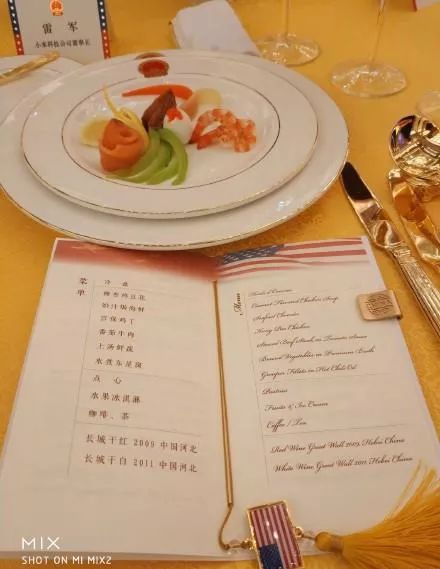 雷 军
小米科技公司董事长
菜单
冷 盘
椰香鸡豆花
奶汁焗海鲜
宫保鸡丁
番茄牛肉
上汤鲜蔬
水煮东星斑
点 心
水果冰淇淋
咖啡、茶
长城干红 2009 中国河北
长城干白 2011 中国河北
Menu
Coconut Flavored Chicken Soup
Seafood Cheesies
Kung Pao Chicken
Stewed Beef Steak in Tomato Sauce
Braised Vegetables in Premium Broth
Grouper Fillets in Hot Chili Oil
Pastries
Fruits & Ice Cream
Coffee / Tea
Red Wine Great Wall 2009, Hebei China
White Wine Great Wall 2011, Hebei China
MIX
SHOT ON MI MIX2